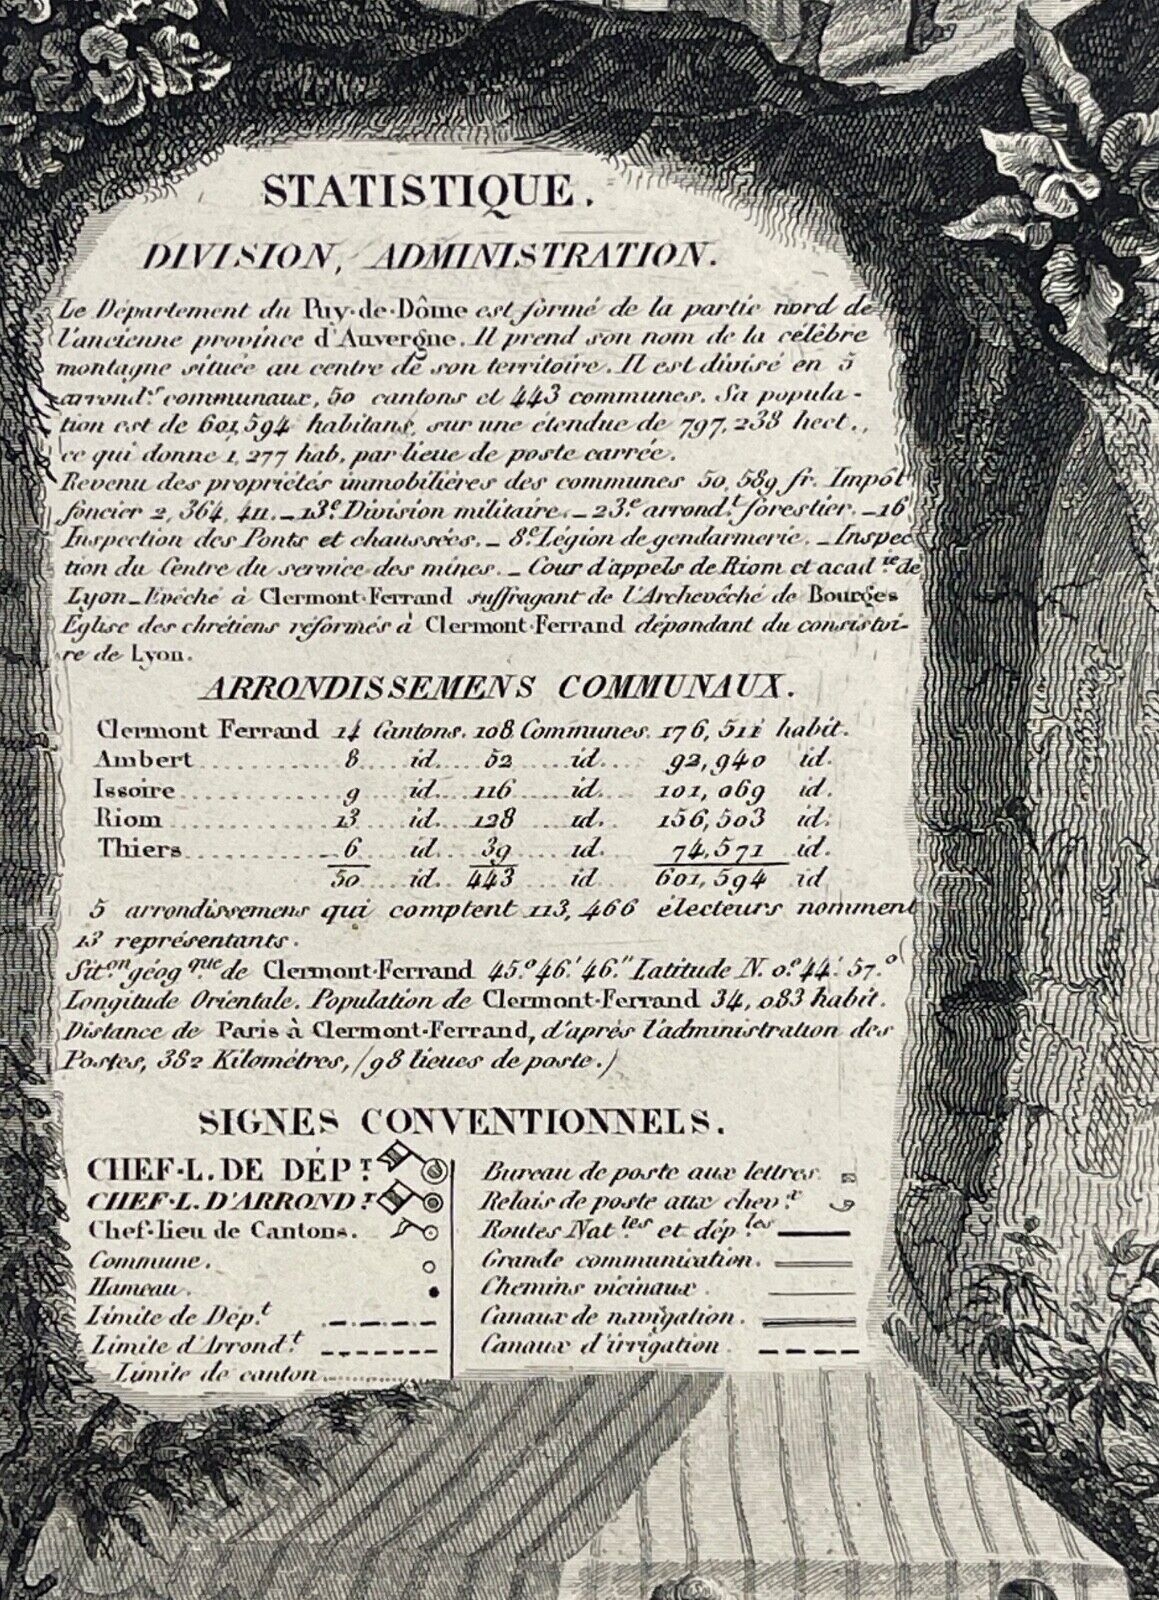 STATISTIQUE.
DIVISION, ADMINISTRATION.
Le Département du Puy-de-Dôme est formé de la partie nord de
l'ancienne province d'Auvergne. Il prend son nom de la célèbre
montagne située au centre de son territoire. Il est divisé en 5
arrond.ˢ communaux, 50 cantons et 443 communes. Sa popula-
tion est de 601,594 habitans, sur une étendue de 797,238 hect.,
ce qui donne 1,277 hab, par lieue de poste carrée.
Revenu des propriétés immobilières des communes 50,589 fr. Impôt
foncier 2,364,411. _ 13.ᵉ Division militaire. _ 23.ᵉ arrond.ᵗ forestier. _ 16.
Inspection des Ponts et chaussées. _ 8.ᵉ Légion de gendarmerie. _ Inspec
tion du Centre du service des mines. _ Cour d'appels de Riom et acad.ⁱᵉ de
Lyon _ Evêché à Clermont-Ferrand suffragant de l'Archevêché de Bourges
Église des chrétiens réformés à Clermont-Ferrand dépendant du consistoi-
re de Lyon.
ARRONDISSEMENS COMMUNAUX.
Clermont Ferrand 14 Cantons. 108 Communes. 176,511 habit.
Ambert 8 id. 52 id. 92,940 id.
Issoire 9 id. 116 id. 101,069 id.
Riom 13 id. 128 id. 156,503 id.
Thiers 6 id. 39 id. 74,571 id.
50 id. 443 id 601,594 id
5 arrondissemens qui comptent 113,466 électeurs nomment
13 représentants.
Sit.ᵒⁿ géog.ᑫᵘᵉ de Clermont-Ferrand 45.° 46.' 46." Latitude N. 0.° 44.' 57.°
Longitude Orientale. Population de Clermont-Ferrand 34,083 habit.
Distance de Paris à Clermont-Ferrand, d'après l'administration des
Postes, 382 Kilomètres, (98 lieues de poste.)
SIGNES CONVENTIONNELS.
CHEF-L. DE DÉP.ᵀ
CHEF-L. D'ARROND.ᵀ
Chef-lieu de Cantons.
Commune.
Hameau.
Limite de Dép.ᵗ
Limite d'Arrond.ᵗ
Limite de canton
Bureau de poste aux lettres.
Relais de poste aux chev.ˣ
Routes Nat.ˡᵉˢ et dép.ˡᵉˢ
Grande communication.
Chemins vicinaux.
Canaux de navigation.
Canaux d'irrigation.